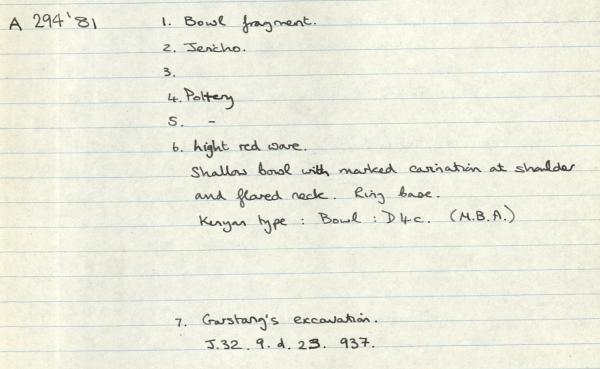 A 294'81
1. Bowl fragment.
2. Jericho.
3.
4. Pottery
5. -
6. Light red ware.
Shallow bowl with marked carination at shoulder
and flared neck. Ring base.
Kenyon type : Bowl : D4c. (M.B.A.)
7. Garstang's excavation.
J.32. 9. d. 23. 937.